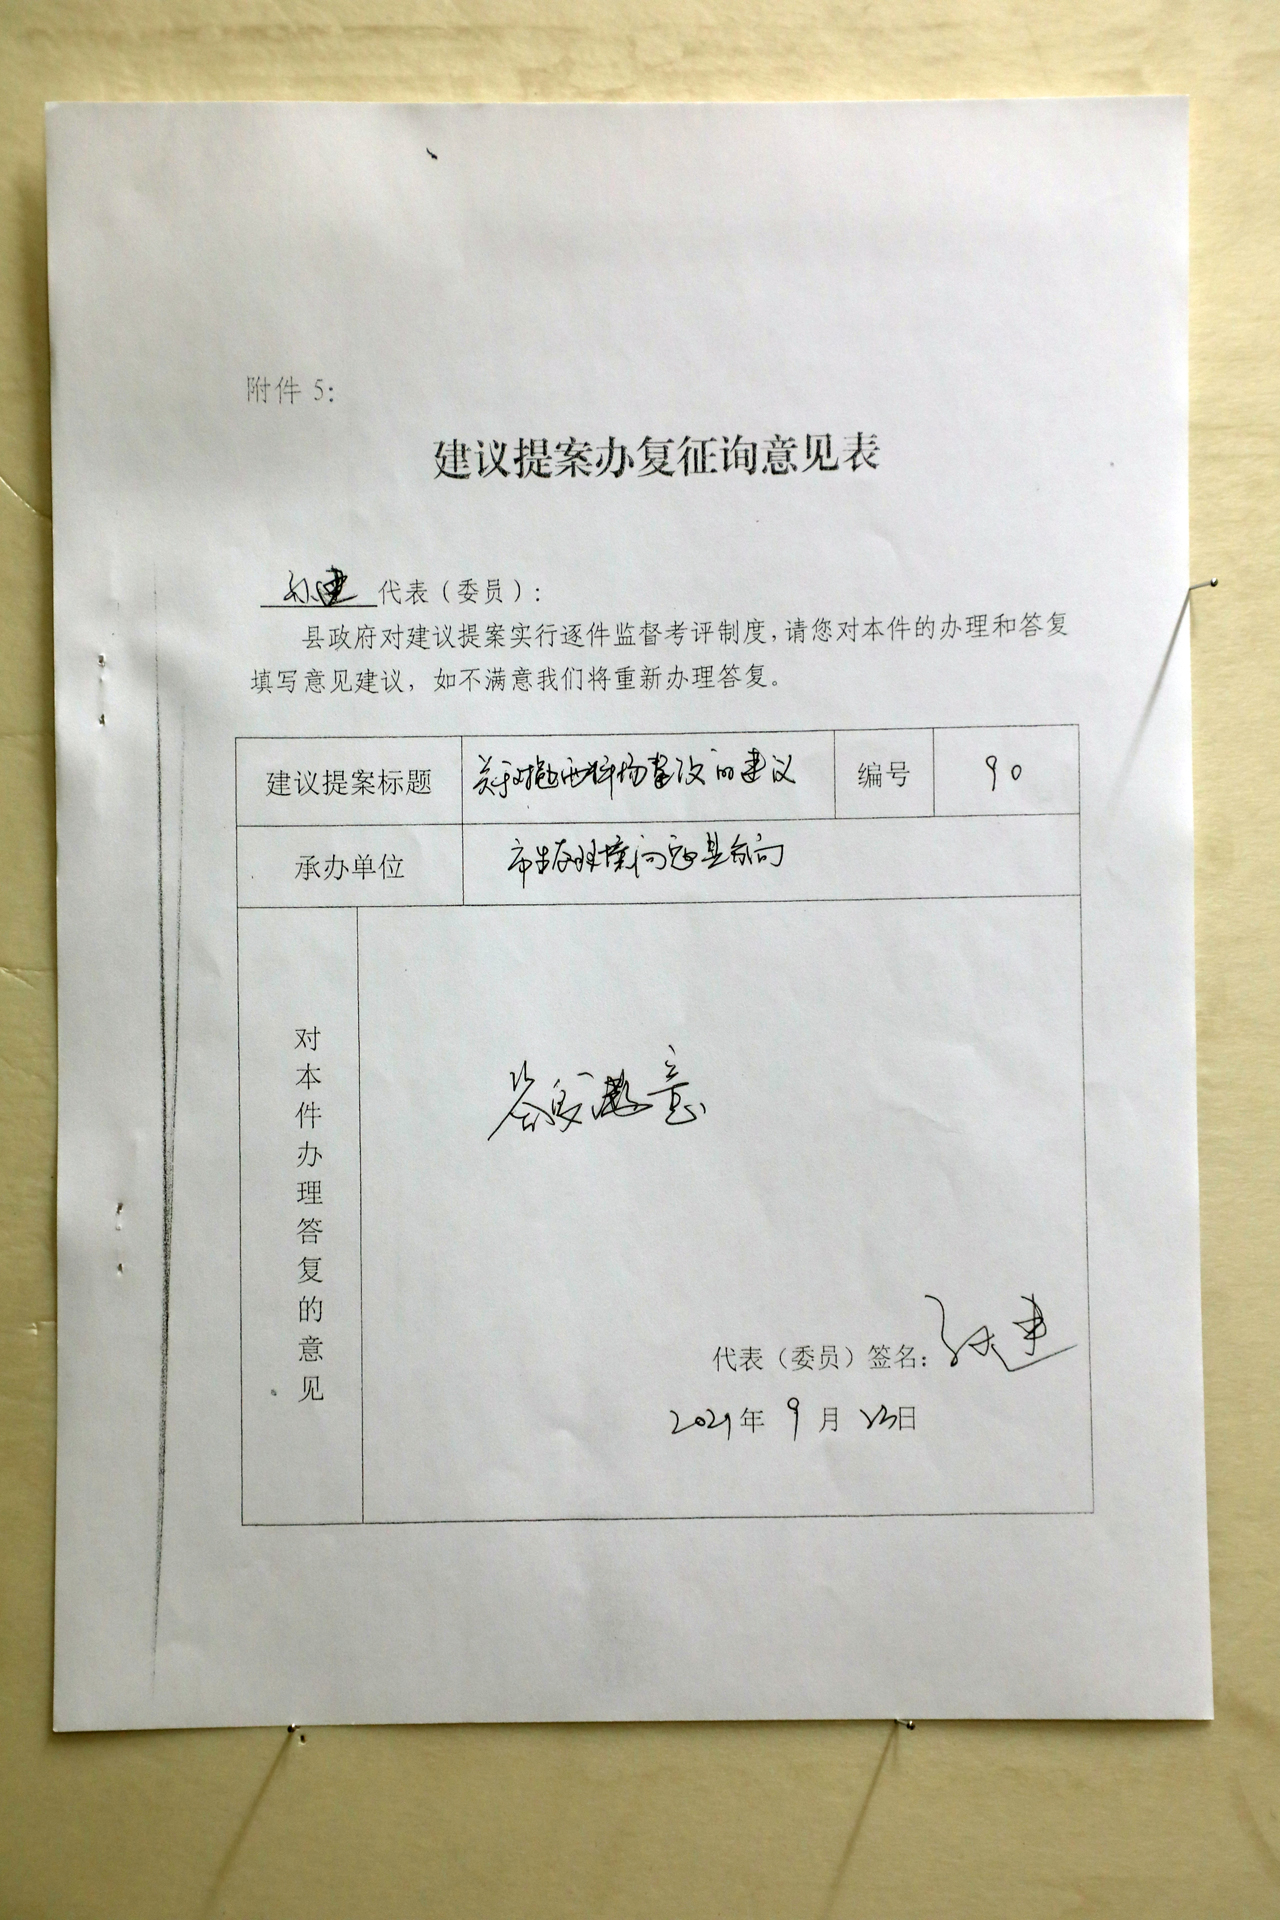 附件 5：
建议提案办复征询意见表
孙建 代表（委员）：
县政府对建议提案实行逐件监督考评制度，请您对本件的办理和答复
填写意见建议，如不满意我们将重新办理答复。
建议提案标题 关于对 的建议 编号 90
承办单位 市生态环境局 县分局
对本件办理答复的意见
答复满意
代表（委员）签名：孙建
2021年 9月 日